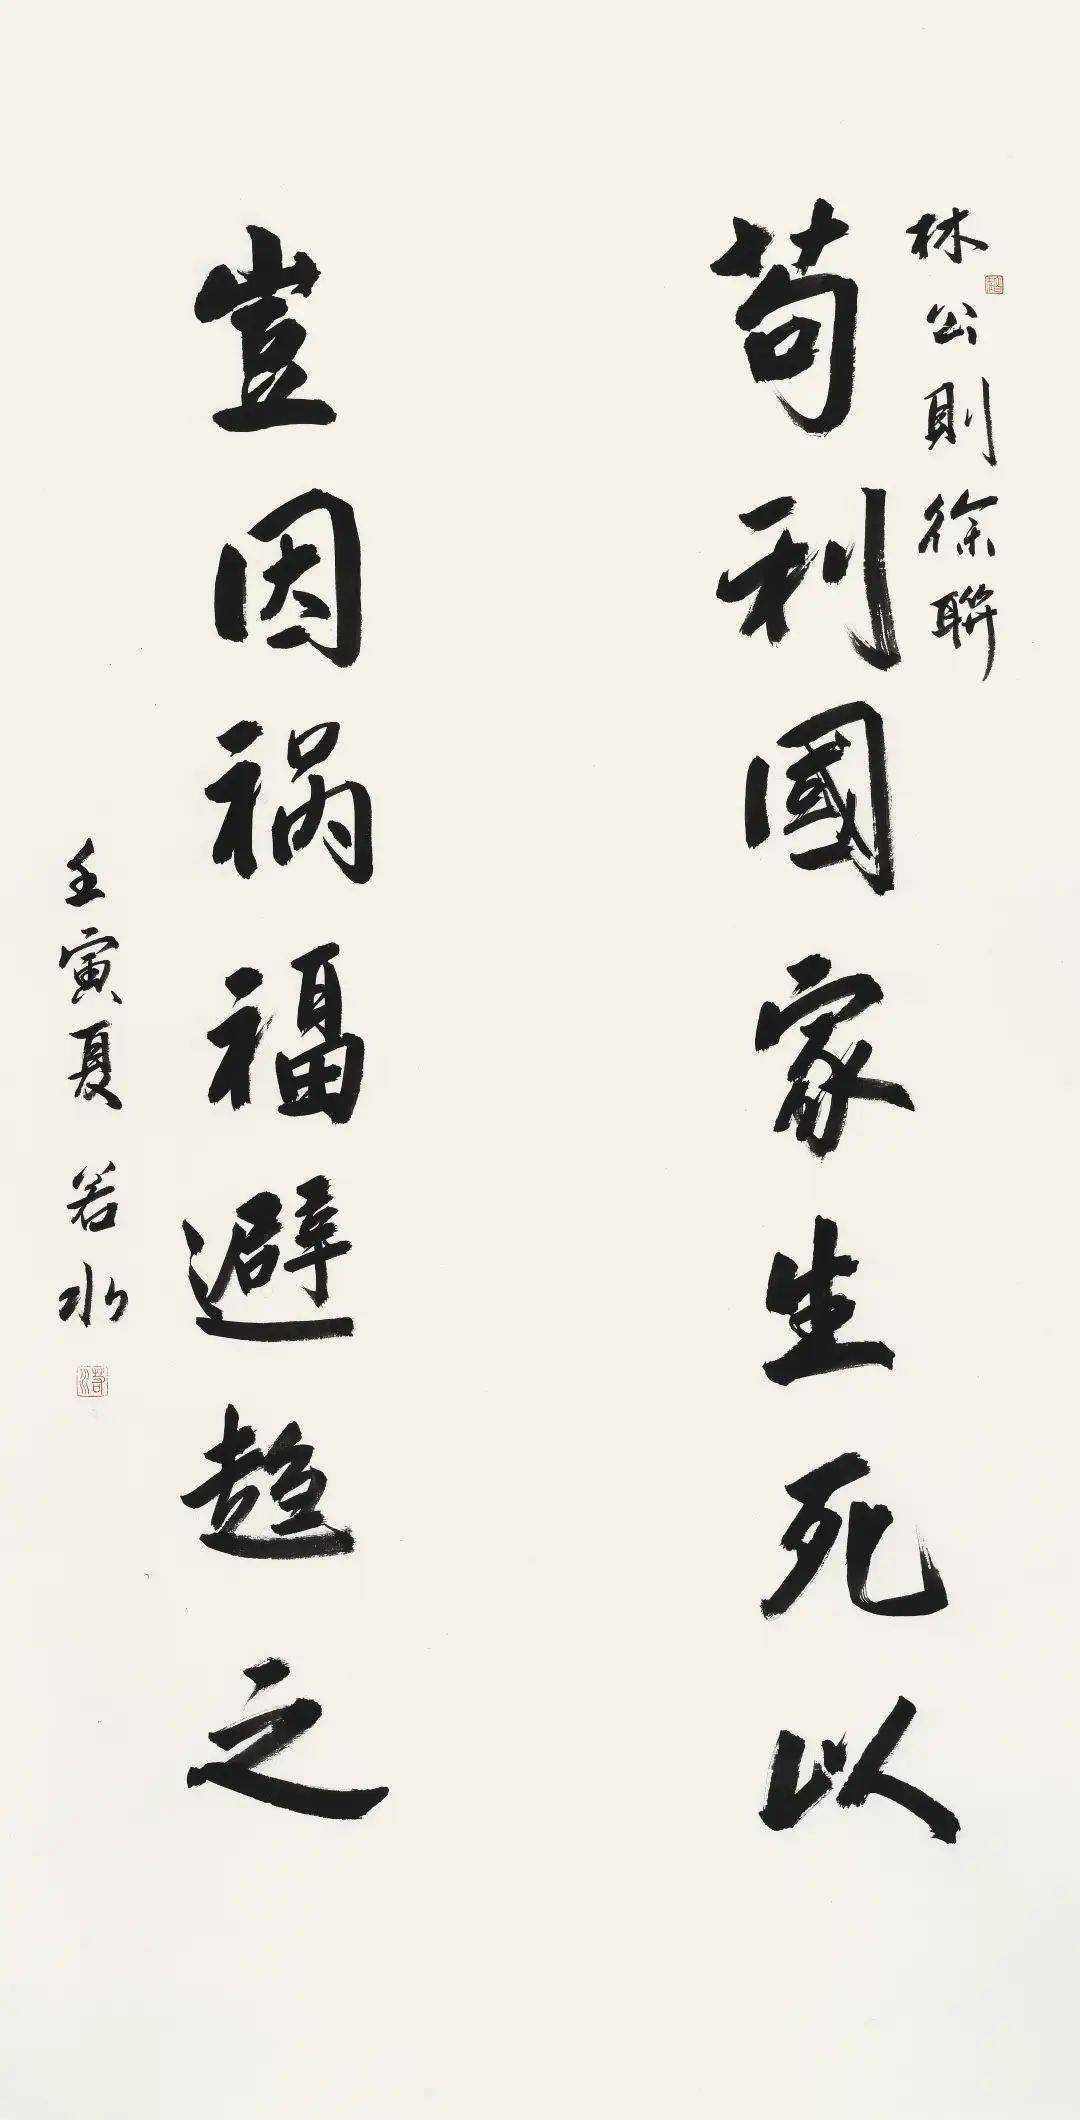 林公則徐聯
苟利國家生死以
豈因祸福避趋之
壬寅夏 若水